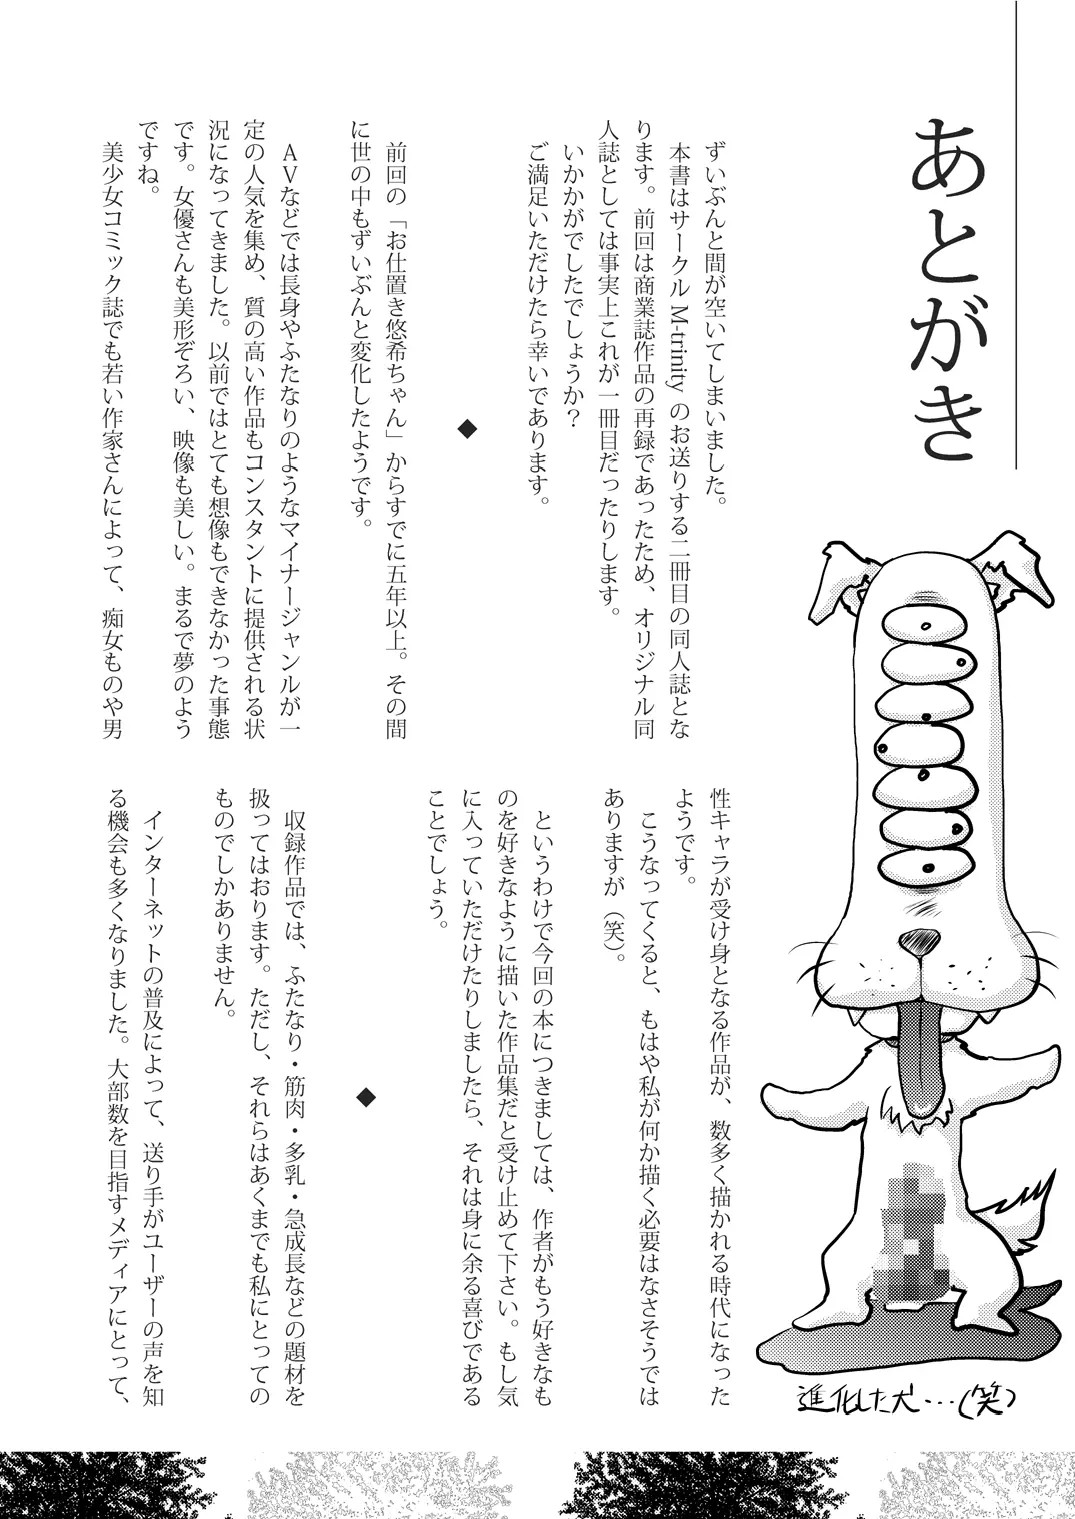 あとがき
ずいぶんと間が空いてしまいました。
本書はサークル M-trinity のお送りする二冊目の同人誌とな
ります。前回は商業誌作品の再録であったため、オリジナル同
人誌としては事実上これが一冊目だったりします。
いかかがでしたでしょうか？
ご満足いただけたら幸いであります。
◆
前回の「お仕置き悠希ちゃん」からすでに五年以上。その間
に世の中もずいぶんと変化したようです。
ＡＶなどでは長身やふたなりのようなマイナージャンルが一
定の人気を集め、質の高い作品もコンスタントに提供される状
況になってきました。以前ではとても想像もできなかった事態
です。女優さんも美形ぞろい、映像も美しい。まるで夢のよう
ですね。
美少女コミック誌でも若い作家さんによって、痴女ものや男
性キャラが受け身となる作品が、数多く描かれる時代になった
ようです。
こうなってくると、もはや私が何か描く必要はなさそうでは
ありますが（笑）。
というわけで今回の本につきましては、作者がもう好きなも
のを好きなように描いた作品集だと受け止めて下さい。もし気
に入っていただけたりしましたら、それは身に余る喜びである
ことでしょう。
◆
収録作品では、ふたなり・筋肉・多乳・急成長などの題材を
扱ってはおります。ただし、それらはあくまでも私にとっての
ものでしかありません。
インターネットの普及によって、送り手がユーザーの声を知
る機会も多くなりました。大部数を目指すメディアにとって、
進化した犬…(笑)